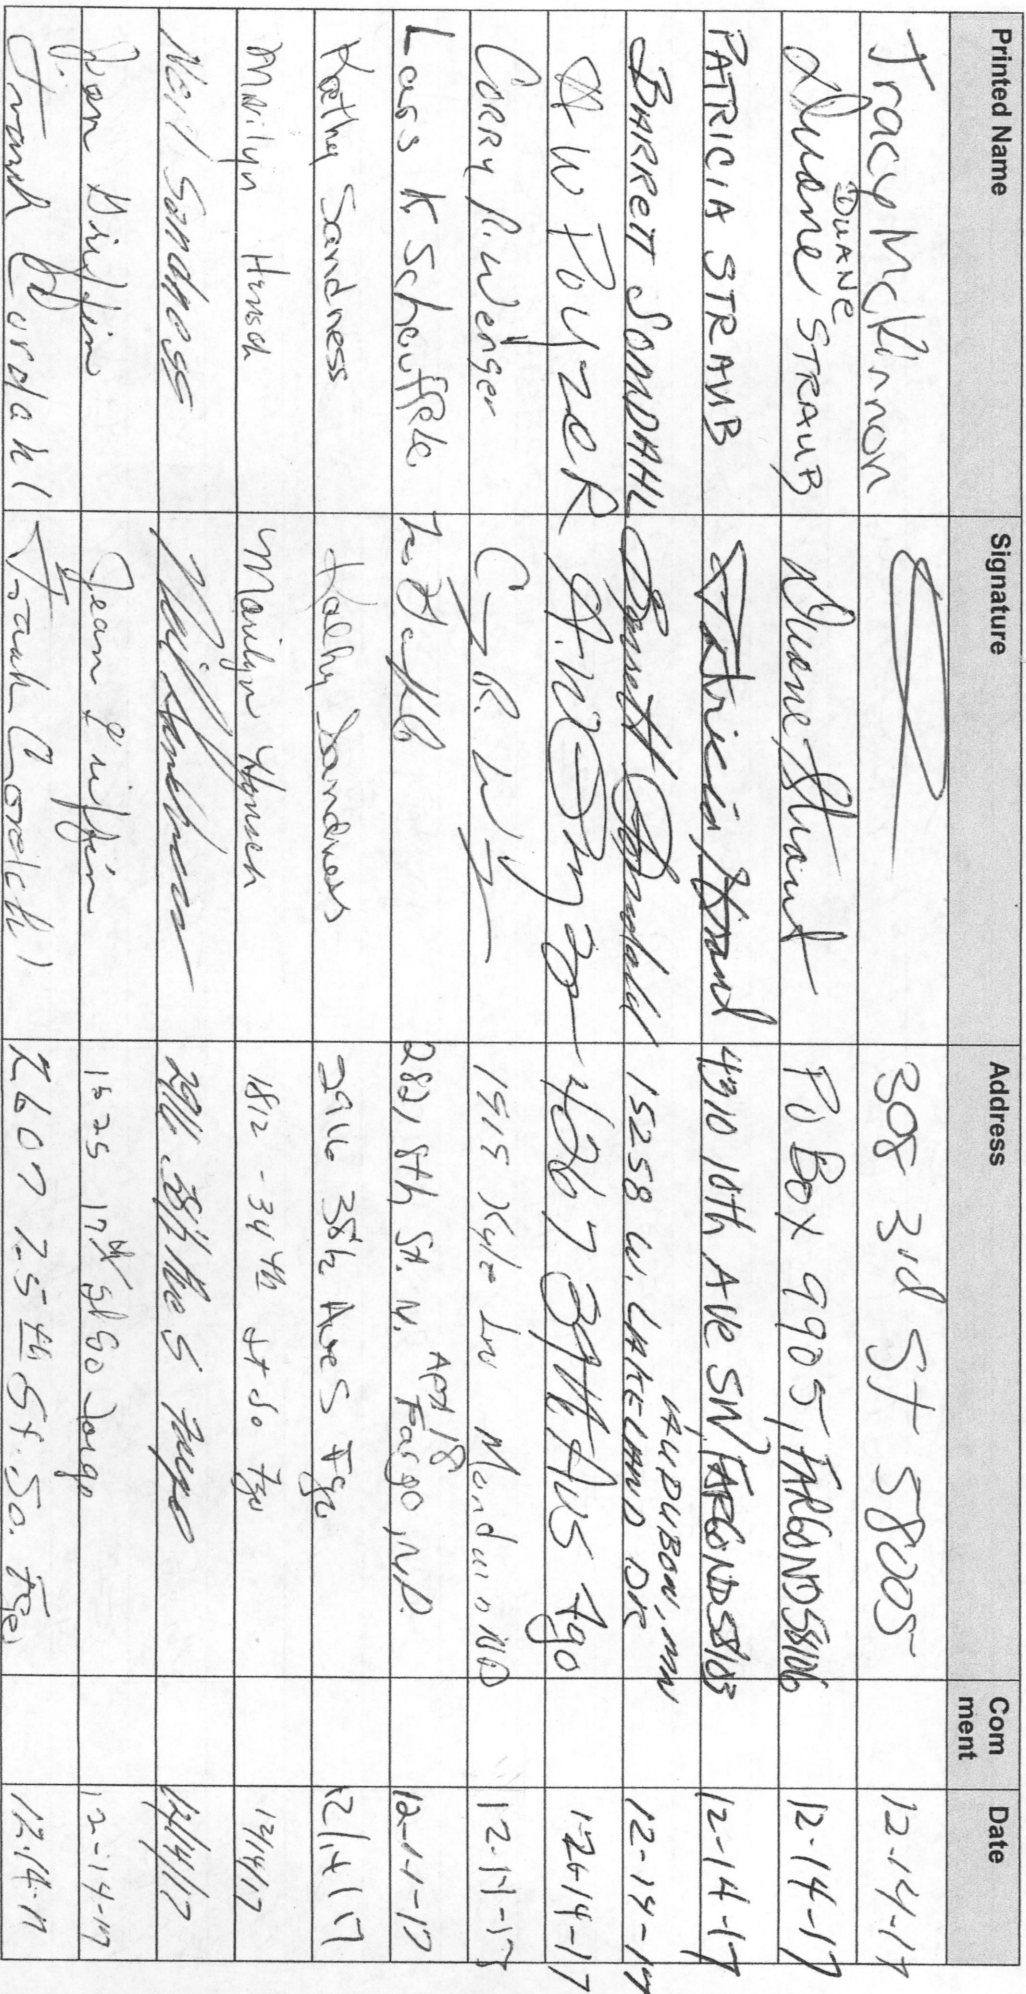 Printed Name Signature Address Com ment Date
Tracy McKinnon 308 3rd St 58005 12-14-17
Duane STRAUB Duane Straub PO Box 9905, FARGO ND 58106 12-14-17
DUANE
PATRICIA STRAUB Patricia Straub 4310 10th AVE SW, FARGO ND 58103 12-14-17
BARRETT SONDAHL Barrett Sondahl 15258 W. LAKELAND DR 12-14-17
AUDUBON, MN
A W POYZER 12-14-17
Corry R. Wenger C R W 1515 Kyle Mandan ND 12-14-17
Lars K Schauffele 2821 8th St. N. Fargo, N.D.
Apt 18
Kathy Sandness Kathy Sandness 2916 38th Ave S Fgo 12/14/17
Marilyn Hensch Marilyn Hensch 1812 - 34th St So Fgo 12/14/17
Neil Sandness Neil Sandness 2916 38th Ave S Fargo 12/14/17
Jean Griffin Jean Griffin 1625 17th St So Fargo 12-14-17
Frank 2607 25th St. So. Fgo 12-14-17